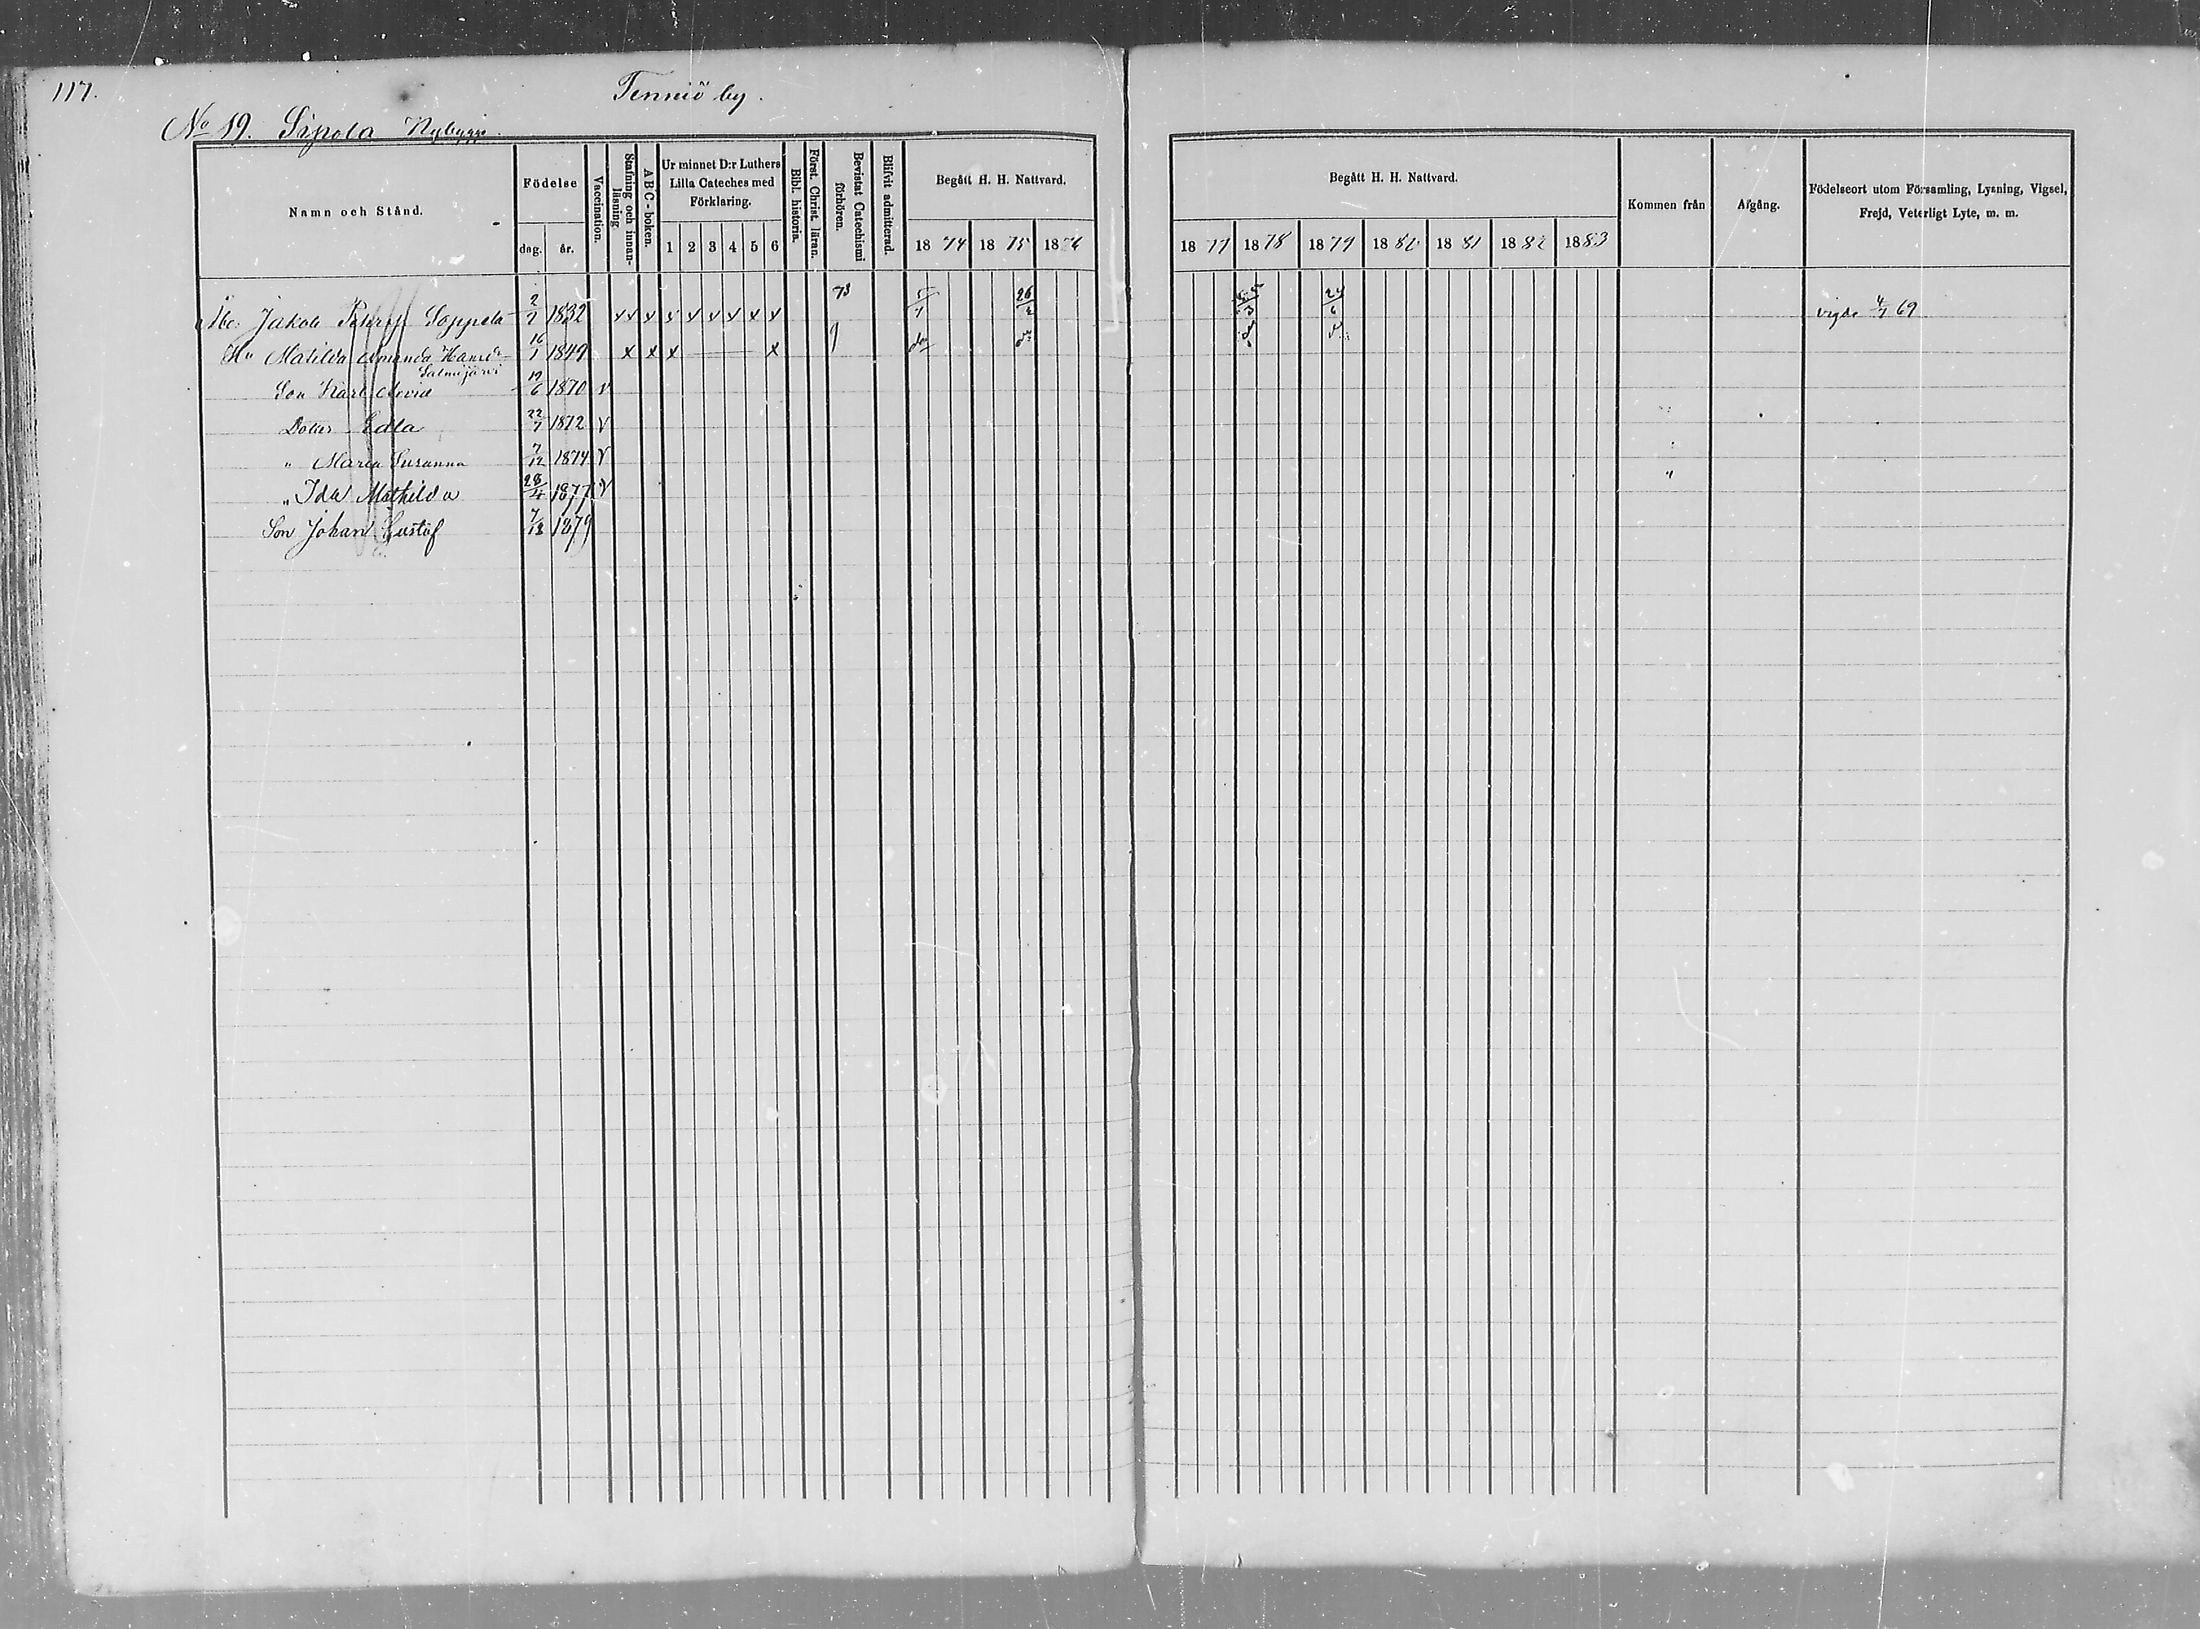 117.
Tenniö by.
No 19. Sipola Nybygge.
Namn och Stånd.
Födelse
dag. år.
Vaccination.
Stafning och innanläsning
ABC-boken.
Ur minnet D:r Luthers Lilla Cateches med Förklaring.
1 2 3 4 5 6
Bibl. historia.
Först. Christ. läran.
Bevistat Catechismi förhören.
Blifvit admitterad.
Begått H. H. Nattvard.
1874 1875 1876
Begått H. H. Nattvard.
1877 1878 1879 1880 1881 1882 1883
Kommen från
Afgång.
Födelseort utom Församling, Lysning, Vigsel, Frejd, Veterligt Lyte, m. m.
Jakob Soppela 2/7 1832 x x x x x x x x x 73 5/1 26/2 24/6 vigde 4/7 69
Hu Matilda Amanda Hansdr 16/1 1849 x x x x do do
Salmijärvi
Son Karl Arvid 19/6 1870 v
Dotter Edla 22/7 1872 v
" Maria Susanna 7/12 1874 v
" Ida Mathilda 28/4 1877 v
Son Johan Gustaf 7/12 1879